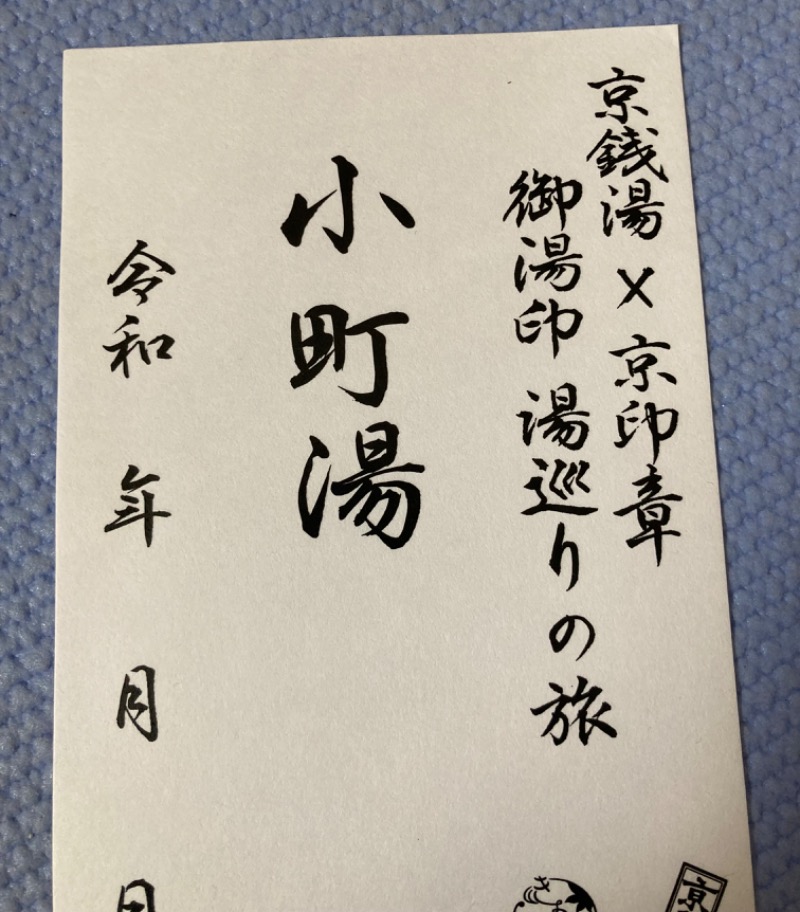 京銭湯×京印章
御湯印 湯巡りの旅
小町湯
令和 年 月 日
京